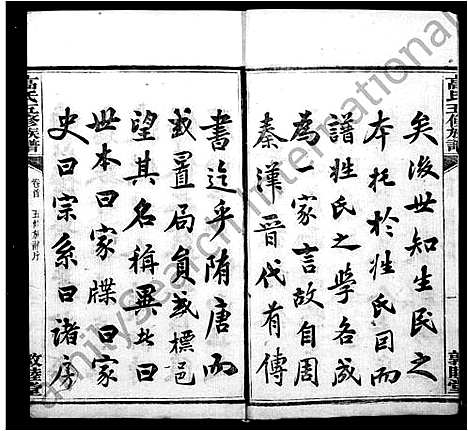 高氏五修族譜
敦睦堂
矣後世知生民之
本托於姓氏回而
譜姓氏之學各成
為一家言故自周
秦漢晉代有傳
書迄乎隋唐而
或置局員或標邑
望其名稱異此曰
世本曰家牒曰家
史曰宗系曰諸房
高氏五修族譜
卷首
敦睦堂
FamilySearch International